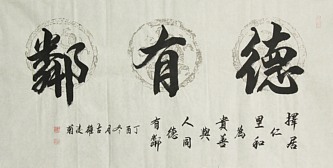 德有鄰
擇居
仁
里和
為
貴善
與
人同
德
有鄰